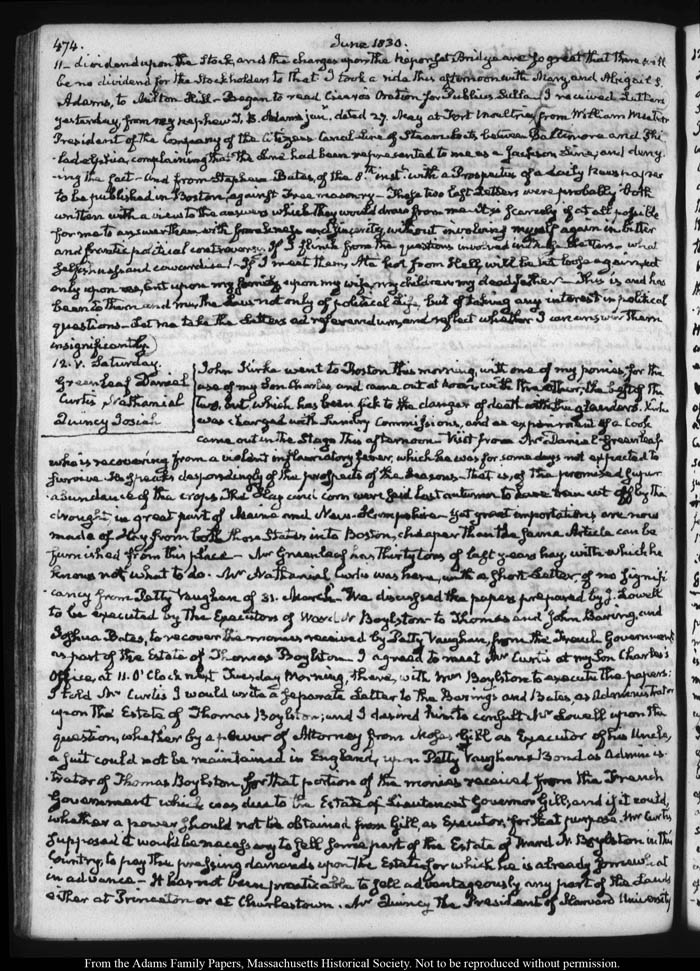 474.
June 1830.
11- dividend upon the Stock, and the charges upon the Neponset Bridge are so great that there will
be no dividend for the Stockholders to that I took a ride this afternoon with Mary, and Abigail S.
Adams, to Milton Hill- Began to read Cicero's Oration for Publius Sulla- I received Letters
yesterday, from my nephew J. B. Adams junr. dated 27. May at Fort Moultrie, from William
President of the Company of the Citizens Canal Line of Steamboats between Baltimore and Phi-
ladelphia, complaining that the Line had been represented to me as a Jackson Line, and deny-
ing the fact- And from Stephen Bates, of the 8th. inst. with a Prospectus of a daily Newspaper
to be published in Boston, against Free masonry- These two last Letters were probably both
written with a view to the answers which they would draw from me. It is scarcely if at all possible
for me to answer them with frankness and sincerity, without involving myself again in bitter
and frantic political controversy. If I flinch from the questions involved in these Letters- what
selfishness and cowardice!- If I meet them, Ate hot from Hell, will be let loose again, not
only upon me, but upon my family, upon my wife, my children, my dead father- This is and has
been to them and me, the Law not only of political Life, but of taking any interest in political
questions- Let me take the Letters ad referendum, and reflect whether I can answer them
insignificantly)
12. V. Saturday.
Greenleaf Daniel
Curtis Nathaniel
Quincy Josiah
John Kirke went to Boston this morning, with one of my ponies for the
use of my Son Charles, and came out at Noon, with the other, the best of the
two, but which has been sick to the danger of death with the glanders. Kirke
was charged with sundry Commissions, and an experiment of a Cook
came out in the Stage this afternoon- Visit from Mr. Daniel Greenleaf
who is recovering from a violent inflammatory fever, which he was for some days not expected to
survive. He speaks despondingly of the prospects of the Seasons- that is, of the promised super
abundance of the crops. The Hay and corn were said last autumn to have been cut off by the
drought in great part of Maine and New-Hampshire- Yet great importations are now
made of Hay from both those States into Boston, cheaper than the same Article can be
furnished from this place- Mr Greenleaf has thirty tons of last years hay, with which he
knows not what to do. Mr Nathaniel Curtis was here, with a short Letter, of no signifi-
cancy from Petty Vaughan of 31. March- We discussed the papers prepared by J. Lowell
to be executed by the Executors of Ward Nr Boylston- to Thomas and John Baring and
Joshua Bates, to recover the monies received by Petty Vaughan, from the French Government
as part of the Estate of Thomas Boylston I agreed to meet Mr Curtis at my Son Charles's
Office, at 11. O'Clock next Tuesday Morning, there, with Mrs Boylston to execute the papers:
I told Mr Curtis I would write a separate Letter to the Barings and Bates, as Administrator
upon the Estate of Thomas Boylston; and I desired him to consult Mr Lowell upon the
question, whether by a power of Attorney from Moses Gill as Executor of his Uncle,
a suit could not be maintained in England, upon Petty Vaughan's Bond as Adminis-
trator of Thomas Boylston, for that portion of the monies received from the French
Government which was due to the Estate of Lieutenant Governor Gill; and if it could,
whether a power should not be obtained from Gill, as Executor, for that purpose. Mr Curtis
supposed it would be necessary to sell some part of the Estate of Ward N. Boylston in this
Country, to pay the pressing demands upon the Estate, for which he is already somewhat
in advance- It has not been practicable to sell advantageously any part of the Lands
either at Princeton or at Charlestown. Mr Quincy the President of Harvard University
From the Adams Family Papers, Massachusetts Historical Society. Not to be reproduced without permission.